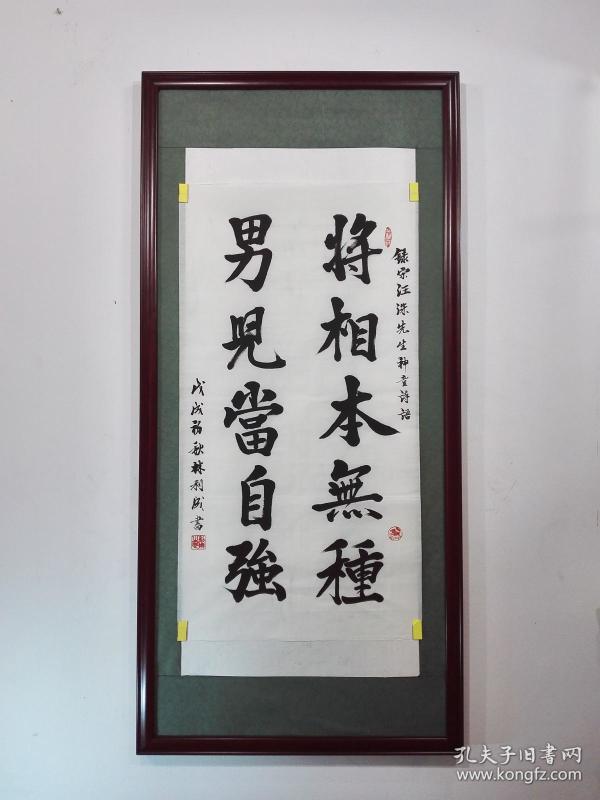 錄宋汪洙先生神童詩語
將相本無種
男兒當自強
戊戌初秋林利成書
孔夫子旧書网
www.kongfz.com